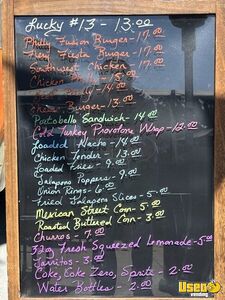 Lucky #13 - 13.00
Philly Fusion Burger - 17.00
Fiery Fiesta Burger - 17.00
Southwest Chicken 17.00
Chicken
Cheese Burger - 13.00
Portobello Sandwich - 14.00
Cold Turkey Provolone Wrap - 12.00
Loaded Nacho - 14.00
Chicken Tender - 13.00
Loaded Fries - 9.00
Jalapeno Poppers - 9.00
Onion Rings - 6.00
Fried Jalapeno Slices - 5.00
Mexican Street Corn - 5.00
Roasted Buttered Corn - 3.00
Churros - 7.00
32oz Fresh Squeezed Lemonade - 5.00
Jarritos - 3.00
Coke, Coke Zero, Sprite - 2.00
Water Bottles - 2.00
UsedVending